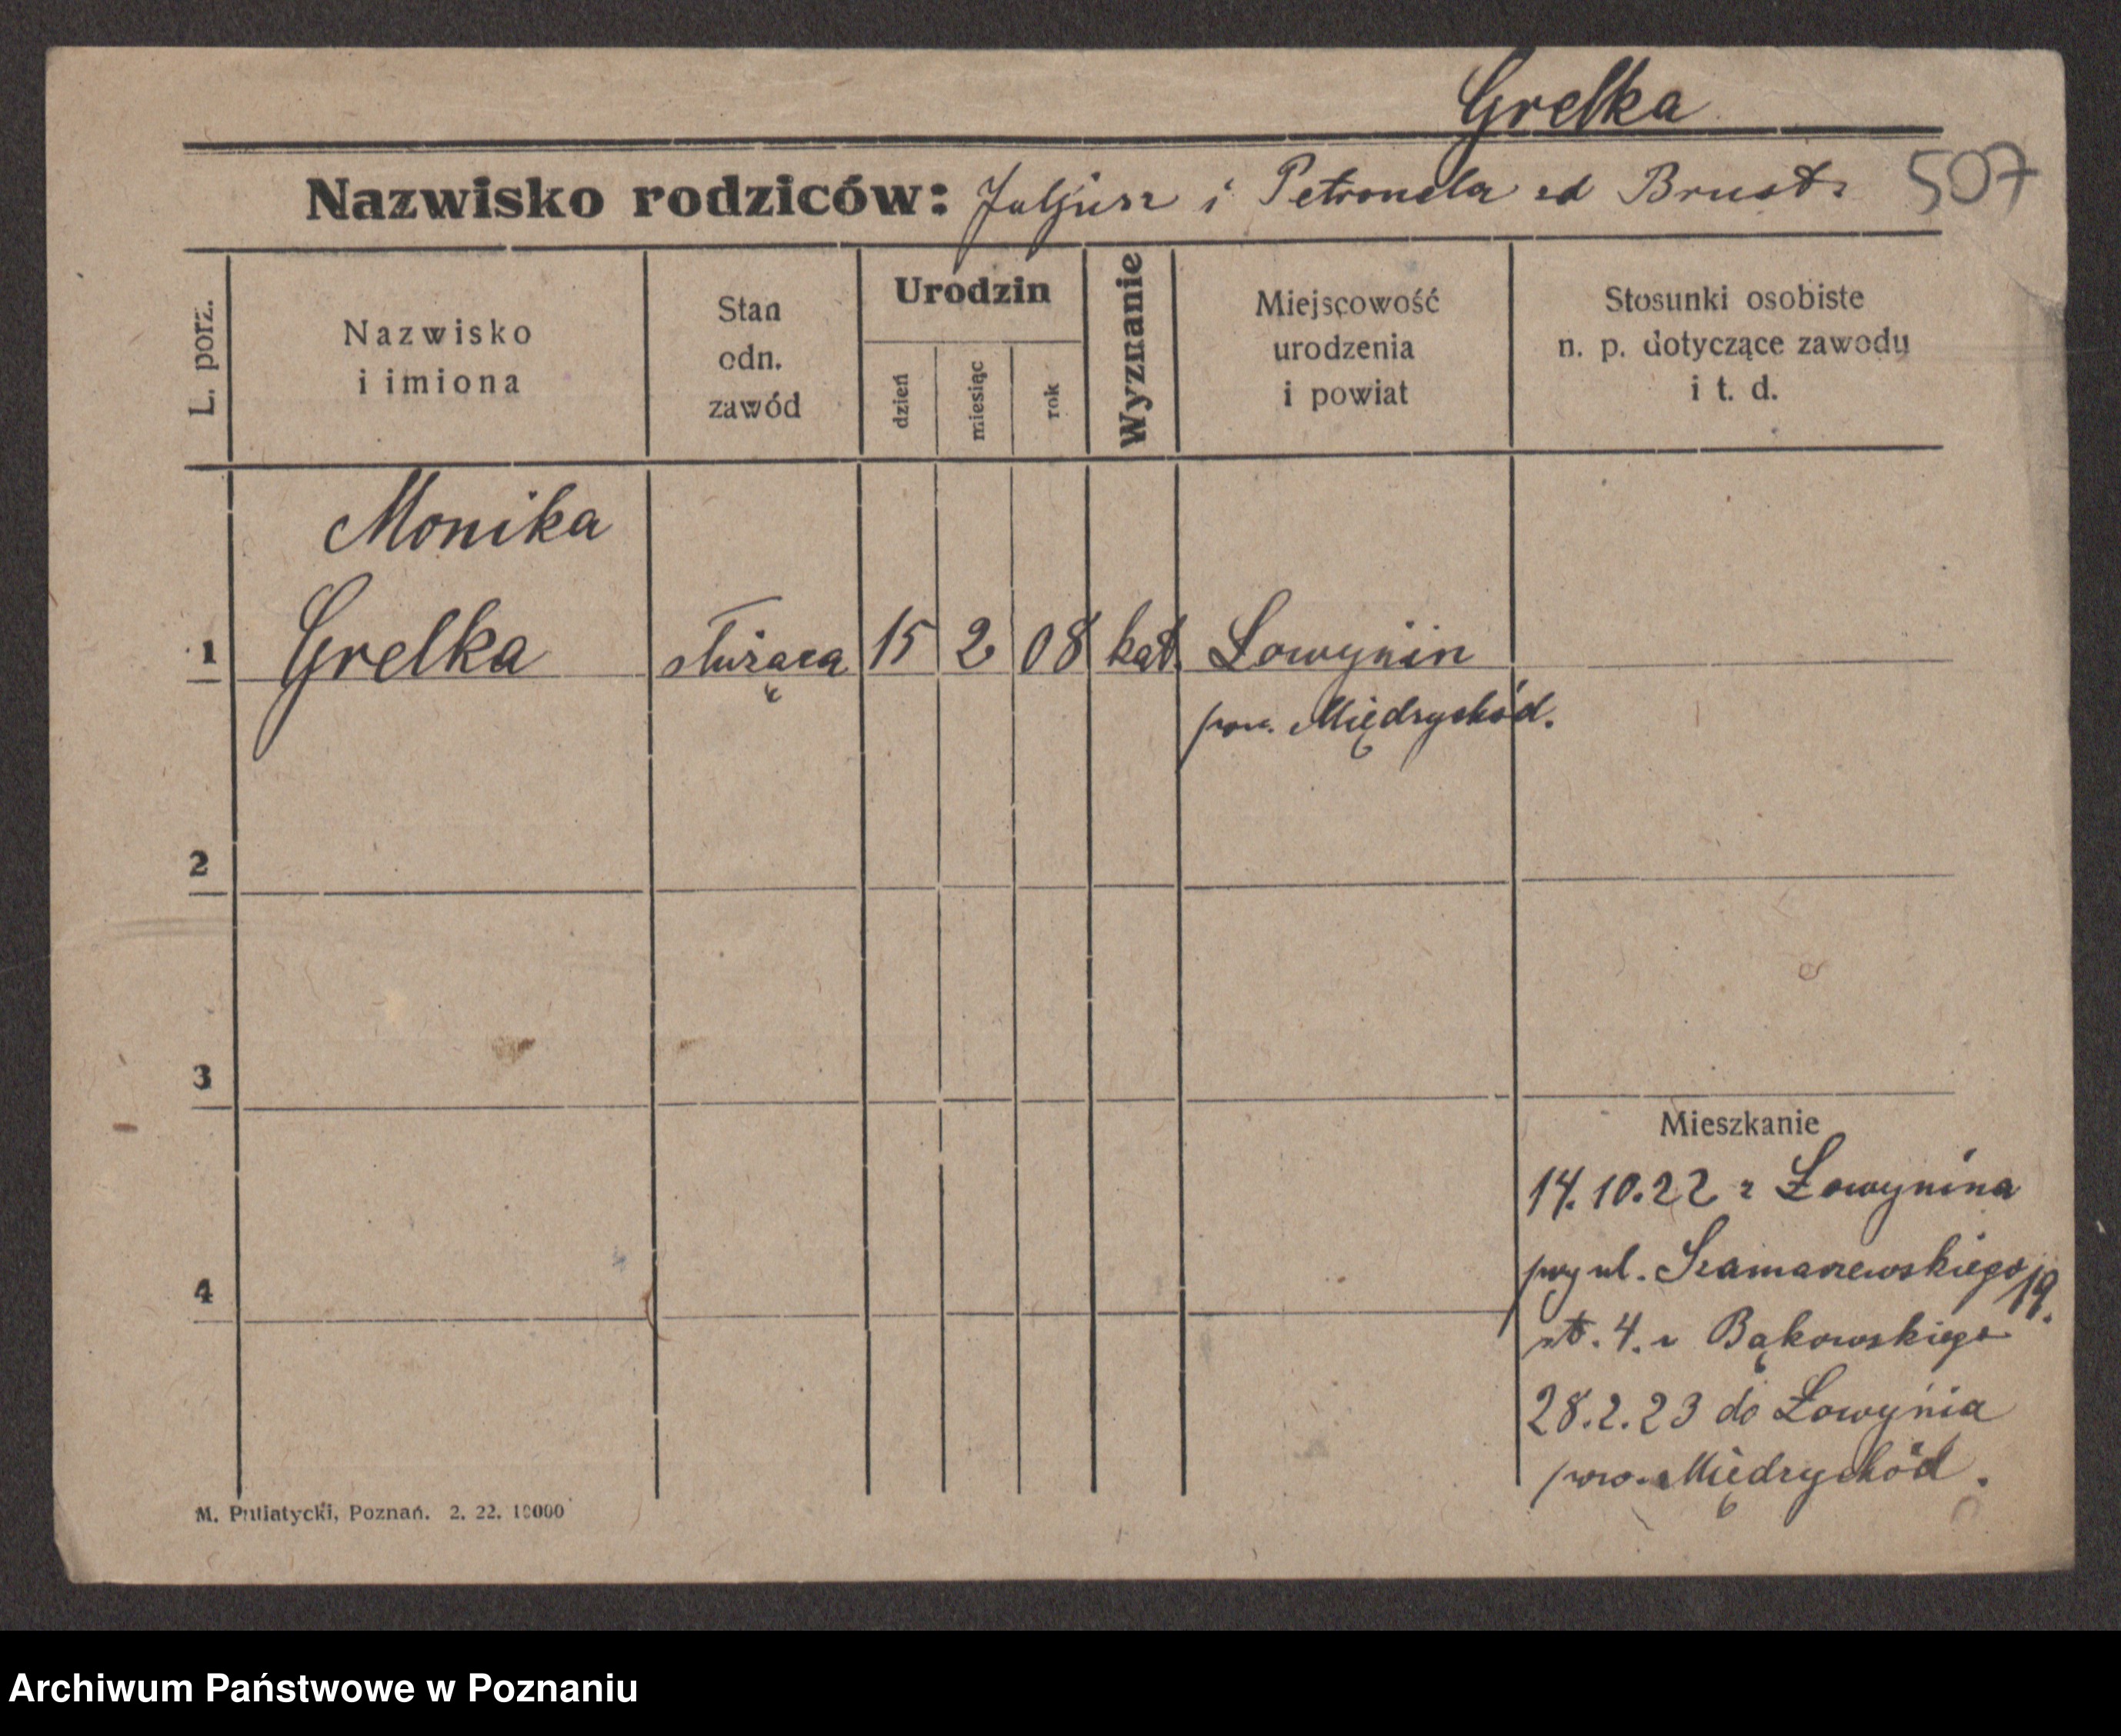 Grelka
Nazwisko rodziców: Juljusz i Petronela zd Brust 507
L. porz.
Nazwisko
i imiona
Stan
odn.
zawód
Urodzin
dzień
miesiąc
rok
Wyznanie
Miejscowość
urodzenia
i powiat
Stosunki osobiste
n. p. dotyczące zawodu
i t. d.
Monika
1 Grelka służąca 15 2 08 kat. Łowynin
pow. Międzychód.
2
3
Mieszkanie
14.10.22 z Łowynina
przy ul. Szamarzewskiego 19.
4
st. 4. u Bąkowskiego
28.2.23 do Łowynia
pow. Międzychód.
M. Putiatycki, Poznań. 2. 22. 10000
Archiwum Państwowe w Poznaniu